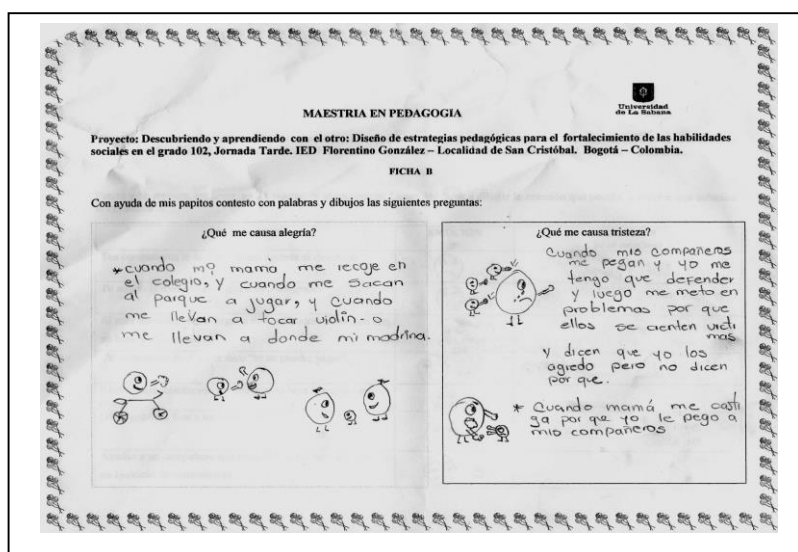 Universidad
de La Sabana
MAESTRIA EN PEDAGOGIA
Proyecto: Descubriendo y aprendiendo con el otro: Diseño de estrategias pedagógicas para el fortalecimiento de las habilidades
sociales en el grado 102, Jornada Tarde. IED Florentino González – Localidad de San Cristóbal. Bogotá – Colombia.
FICHA B
Con ayuda de mis papitos contesto con palabras y dibujos las siguientes preguntas:
¿Qué me causa alegría?
*cuando mº mamá me recoje en
el colegio, y cuando me sacan
al parque a jugar, y cuando
me llevan a tocar violin- o
me llevan a donde mi madrina.
¿Qué me causa tristeza?
Cuando mis compañeros
me pegan y yo me
tengo que defender
y luego me meto en
problemas por que
ellos se cienten victi
mas
y dicen que yo los
agredo pero no dicen
por que.
* Cuando mamá me casti
ga por que yo le pego a
mis compañeros